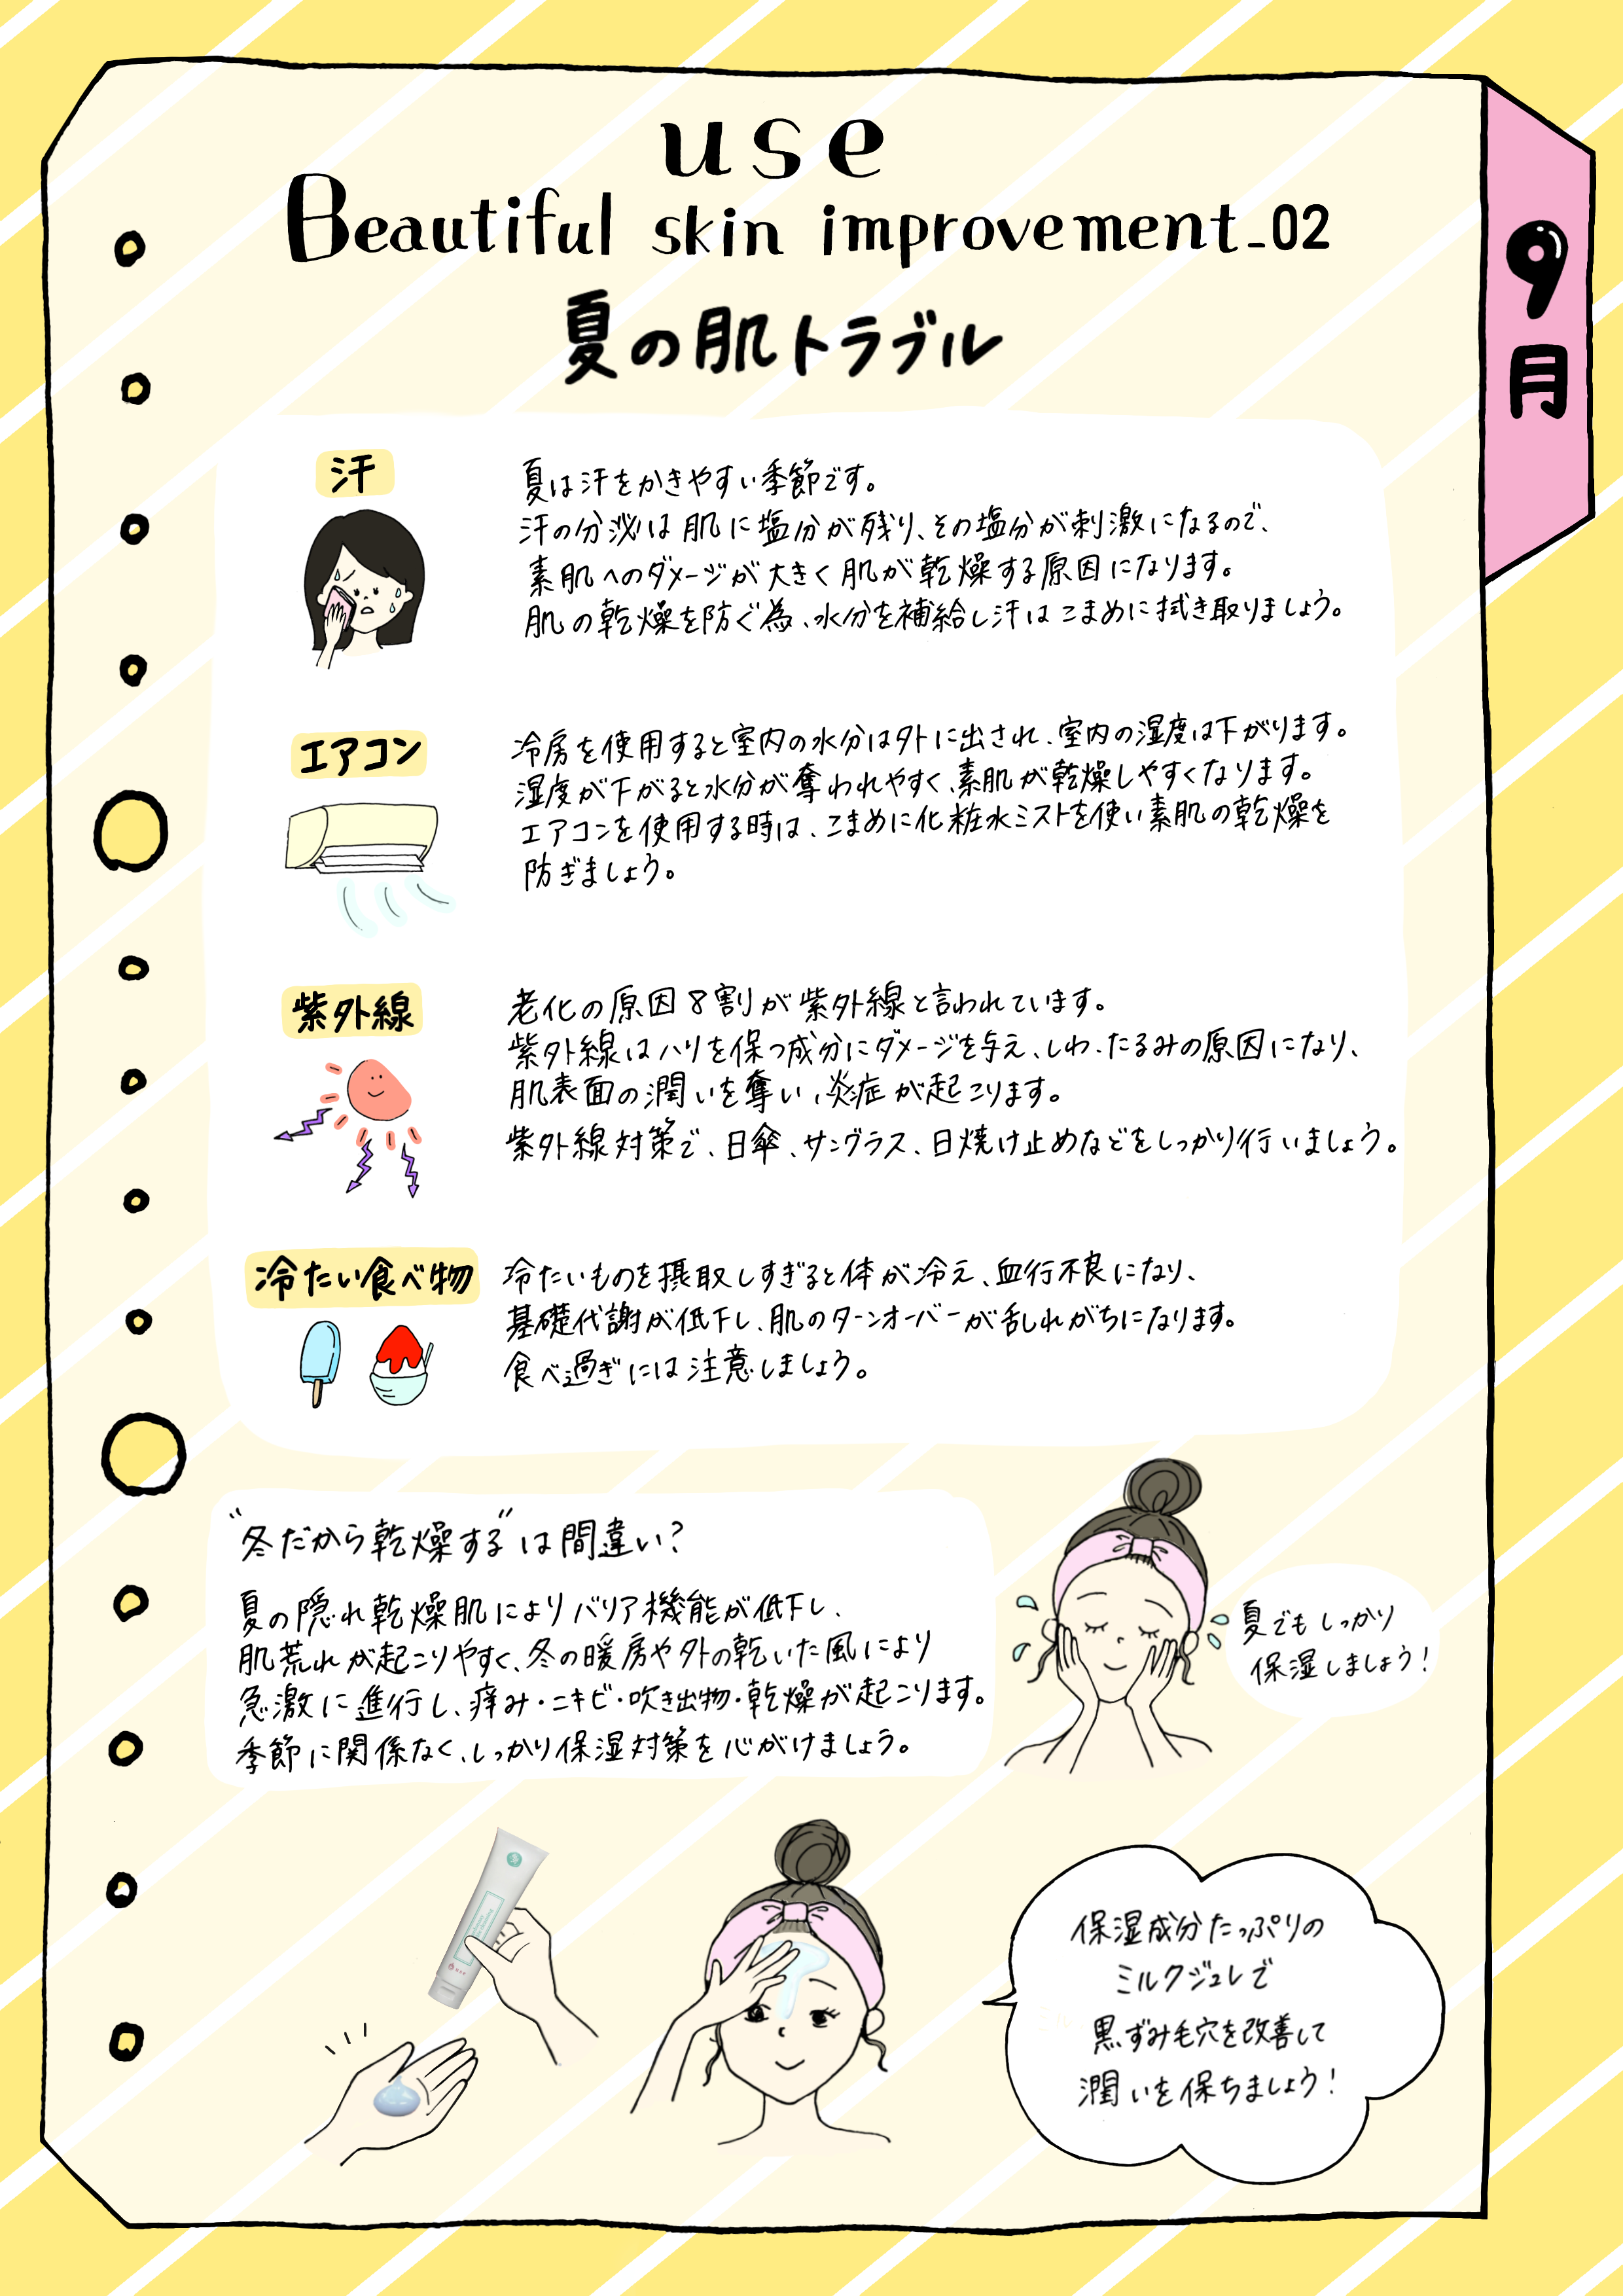 use
Beautiful skin improvement_02
夏の肌トラブル
9月
汗
夏は汗をかきやすい季節です。
汗の分泌は肌に塩分が残り、その塩分が刺激になるので、
素肌へのダメージが大きく肌が乾燥する原因になります。
肌の乾燥を防ぐ為、水分を補給し汗はこまめに拭き取りましょう。
エアコン
冷房を使用すると室内の水分は外に出され、室内の湿度は下がります。
湿度が下がると水分が奪われやすく、素肌が乾燥しやすくなります。
エアコンを使用する時は、こまめに化粧水ミストを使い素肌の乾燥を
防ぎましょう。
紫外線
老化の原因8割が紫外線と言われています。
紫外線はハリを保つ成分にダメージを与え、しわ、たるみの原因になり、
肌表面の潤いを奪い、炎症が起こります。
紫外線対策で、日傘、サングラス、日焼け止めなどをしっかり行いましょう。
冷たい食べ物
冷たいものを摂取しすぎると体が冷え、血行不良になり、
基礎代謝が低下し、肌のターンオーバーが乱れがちになります。
食べ過ぎには注意しましょう。
"冬だから乾燥する"は間違い?
夏の隠れ乾燥肌によりバリア機能が低下し、
肌荒れが起こりやすく、冬の暖房や外の乾いた風により
急激に進行し、痒み・ニキビ・吹き出物・乾燥が起こります。
季節に関係なく、しっかり保湿対策を心がけましょう。
夏でもしっかり
保湿しましょう!
保湿成分たっぷりの
ミルクジュレで
黒ずみ毛穴を改善して
潤いを保ちましょう!